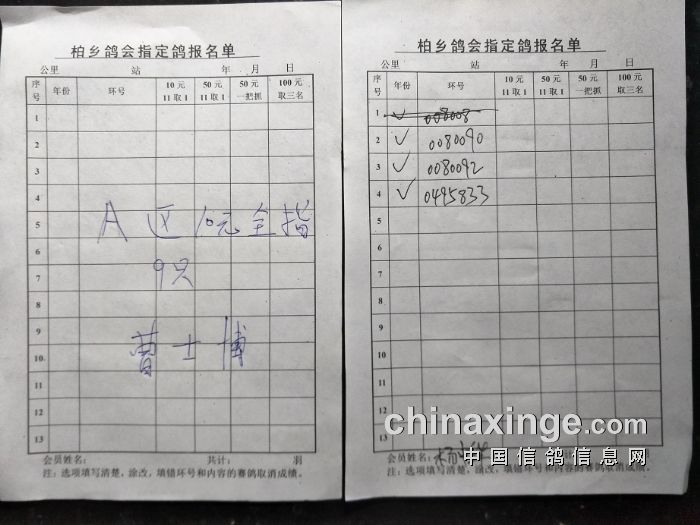 柏乡鸽会指定鸽报名单
公里 站 年 月 日
序号 年份 环号 10元11取1 50元11取1 50元一把抓 100元取三名
1
2
3
4
A区10元全指
5
6
9只
7
8
9
曹士博
10.
11
12
13
会员姓名: 共计: 羽
注:选项填写清楚,涂改,填错环号和内容的赛鸽取消成绩。
柏乡鸽会指定鸽报名单
公里 站 年 月 日
序号 年份 环号 10元11取1 50元11取1 50元一把抓 100元取三名
1 ✓ 008008
2 ✓ 0080090
3 ✓ 0080092
4 ✓ 0495833
5
6
7
8
9
10
11
12
13
会员姓名:
注:选项填写清楚,涂改,填错环号和内容的赛鸽取消成绩。
chinaxinge.com
中国信鸽信息网